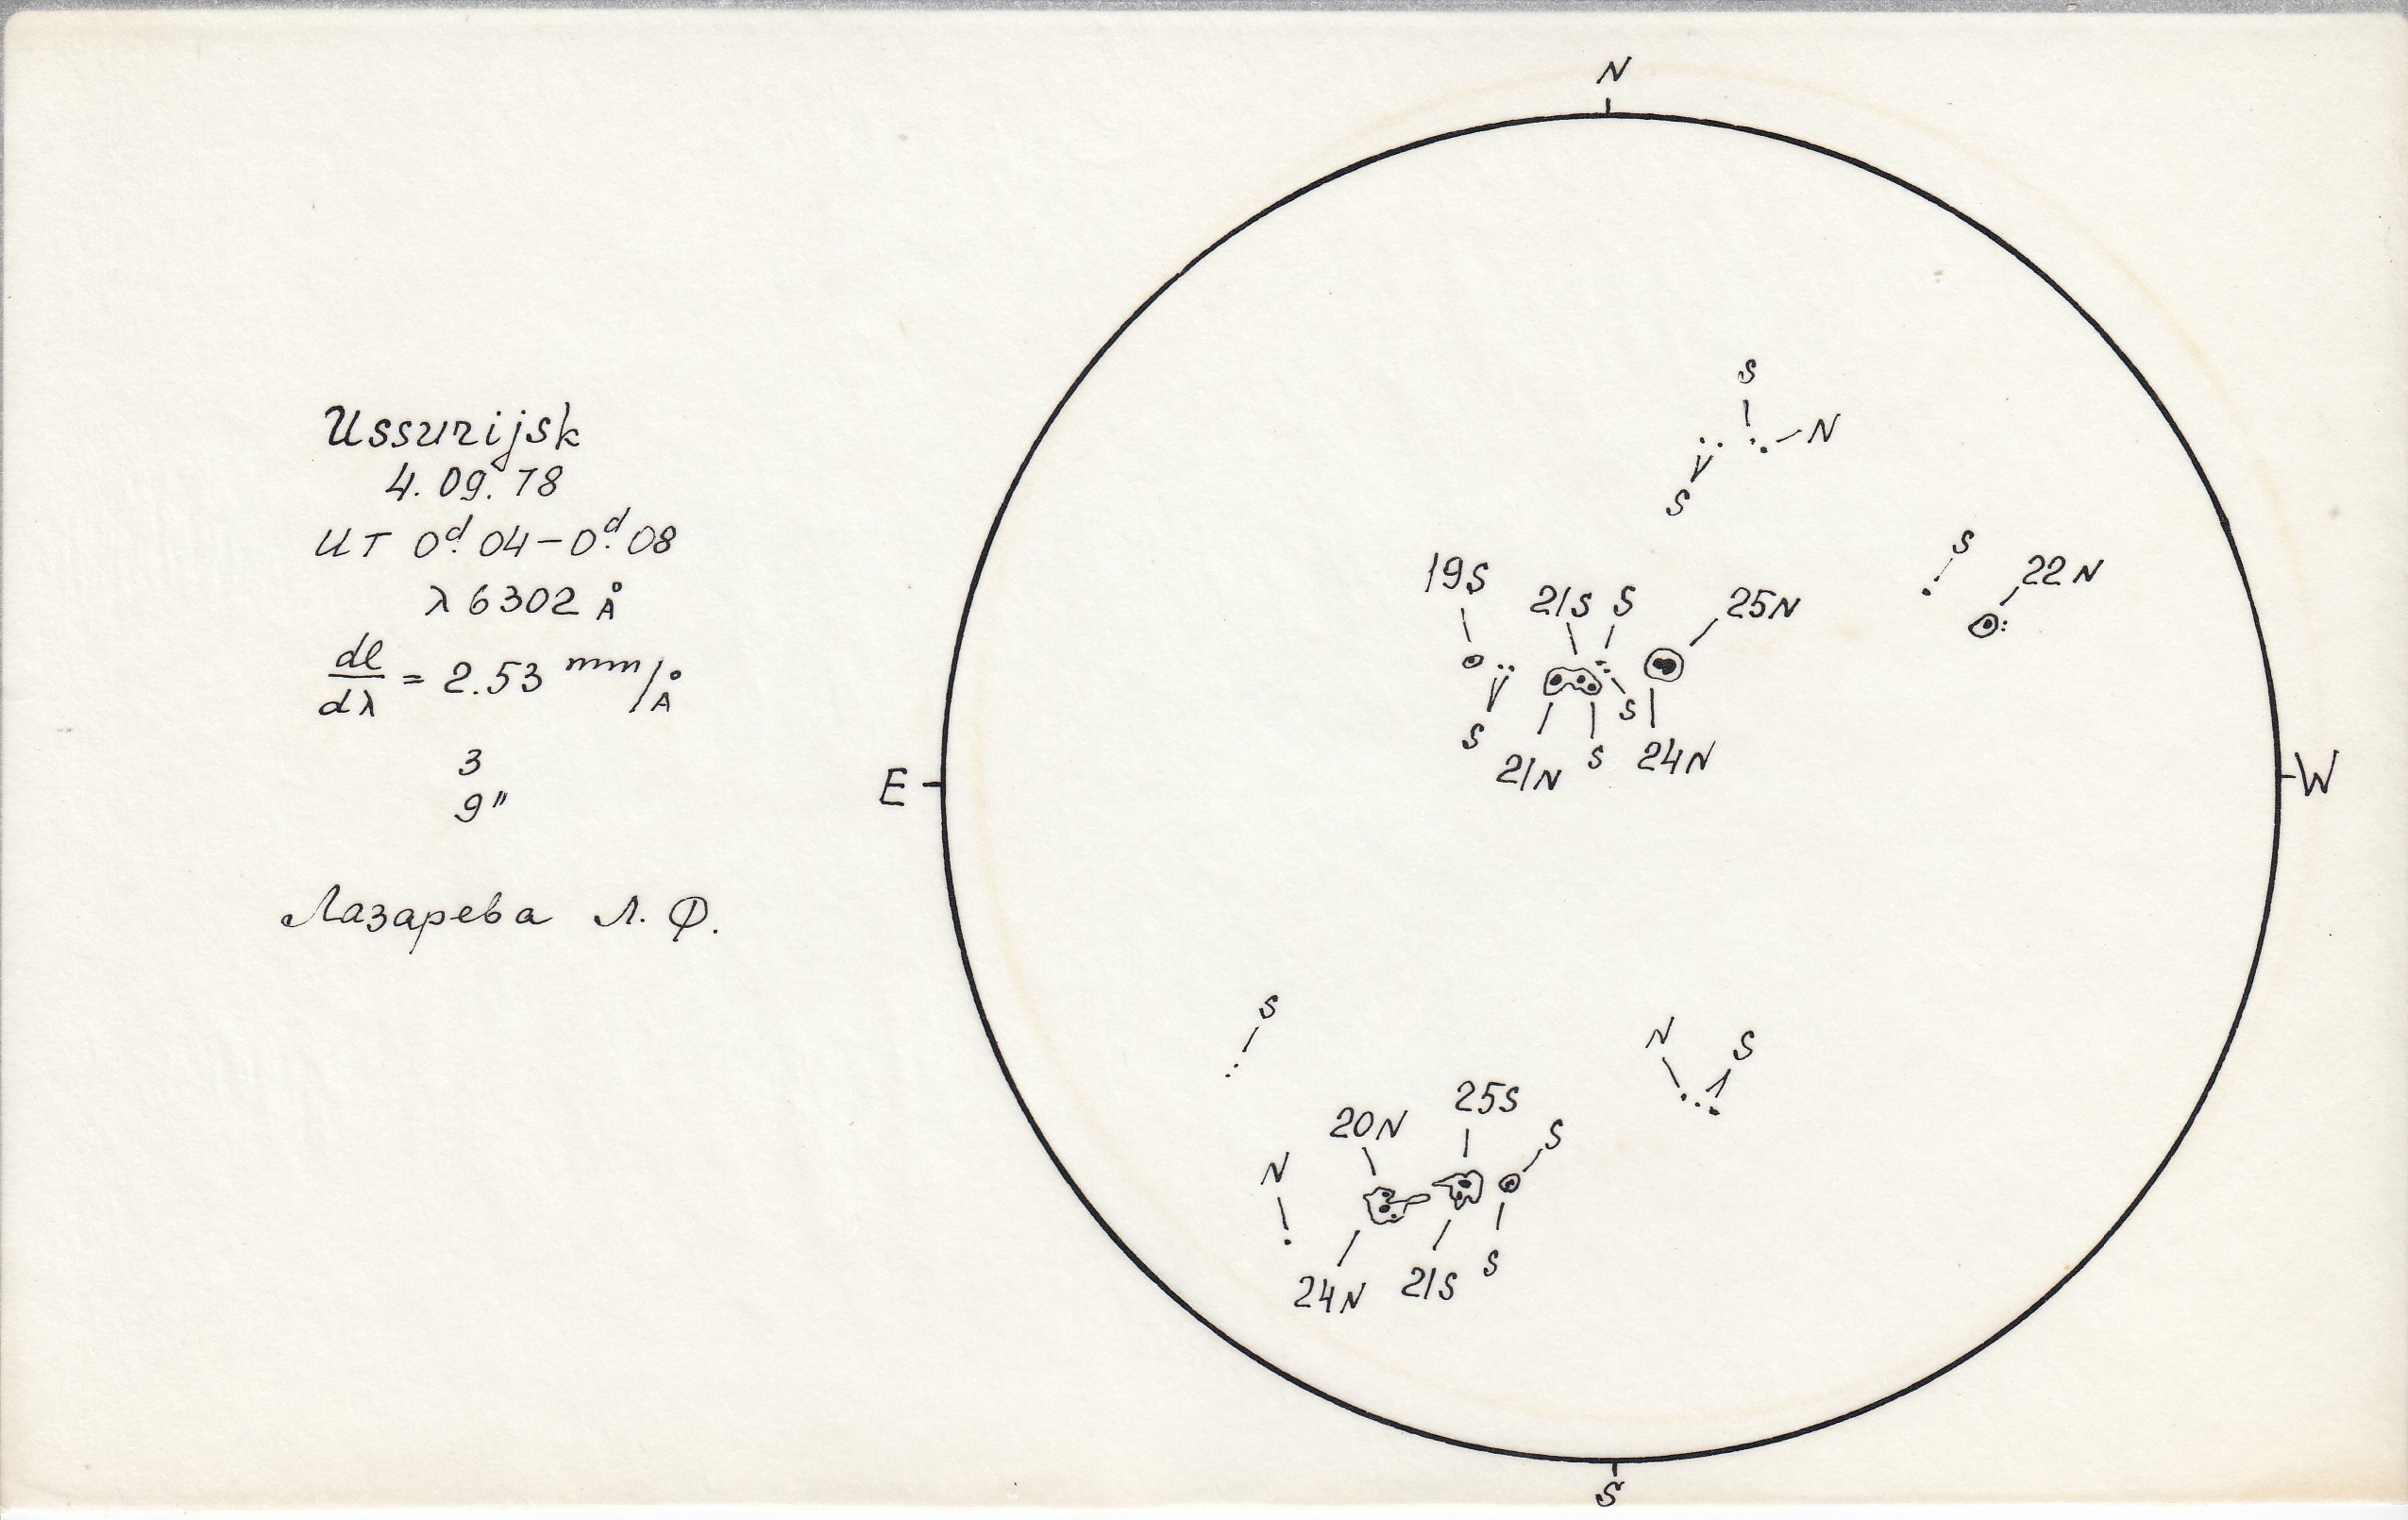 Ussurijsk
4. 09. 78
UT 0ᵈ.04–0ᵈ.08
λ 6302 Å
dl/dλ = 2.53 mm/Å
3
9"
Лазарева Л. Ф.
N
S
N
S
S
22N
19S
21S S
25N
S
S
21N
S
24N
E
W
S
N
S
25S
20N
S
N
S
24N
21S
S